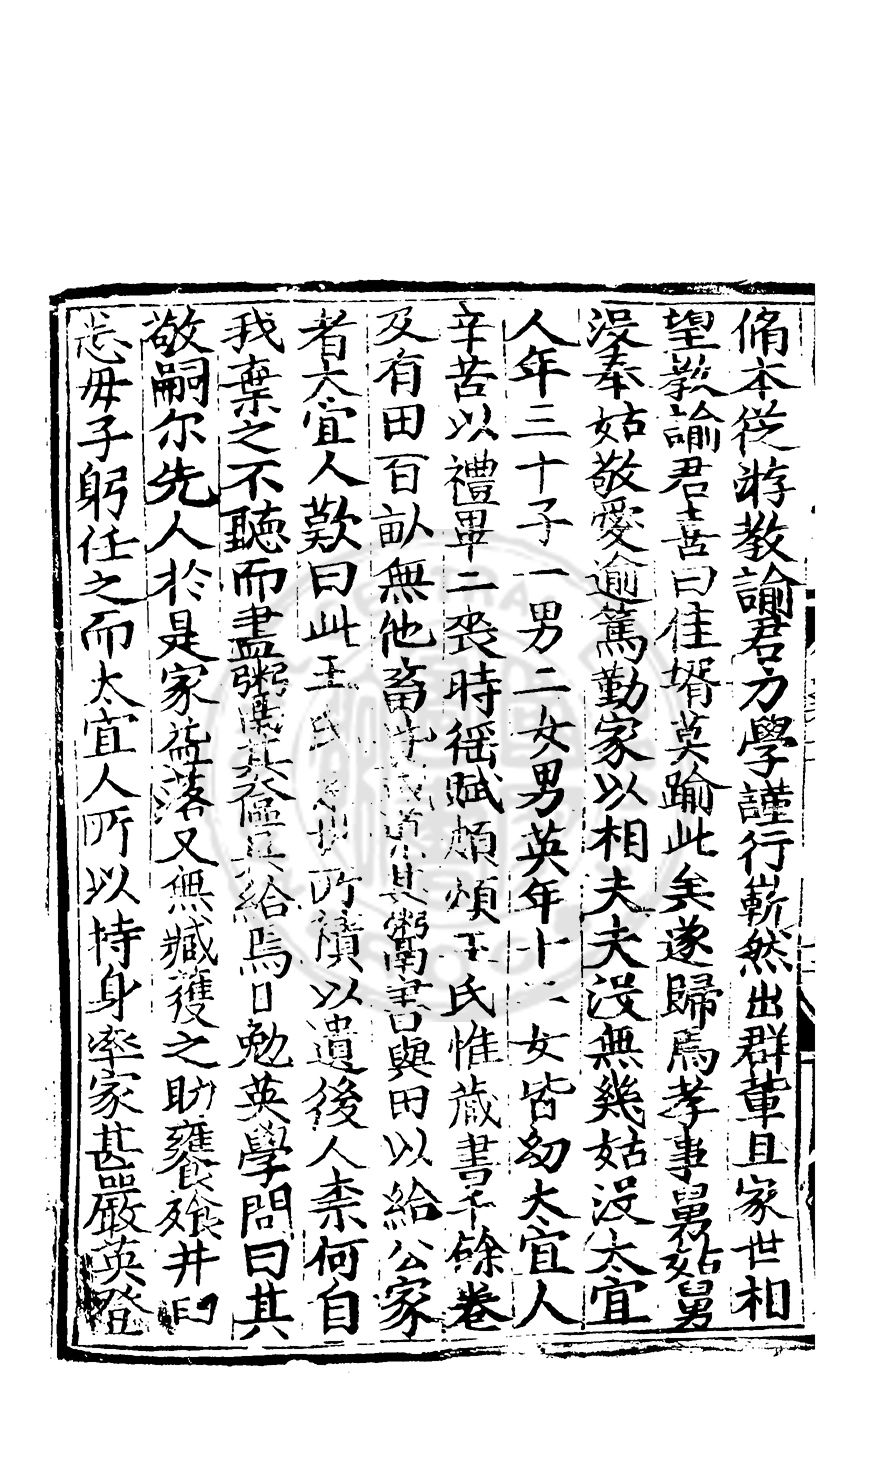 脩本從游教諭君力學謹行嶄然出群輩且家世相
望教諭君喜曰佳壻莫踰此矣遂歸焉孝事舅姑舅
沒奉姑敬愛逾篤勤家以相夫夫沒無幾姑沒太宜
人年三十子一男二女男英年十二女皆幼太宜人
辛苦以禮畢二喪時徭賦頗煩王氏惟蔵書千餘卷
及有田百畝無他畜其鬻書與田以給公家
者太宜人歎曰此王氏所積以遺後人柰何自
我棄之不聽而盡鬻其衣具給焉日勉英學問曰其
敬嗣尔先人於是家益落又無臧獲之助饔飧井臼
忠母子躬任之而太宜人所以持身率家甚嚴英登